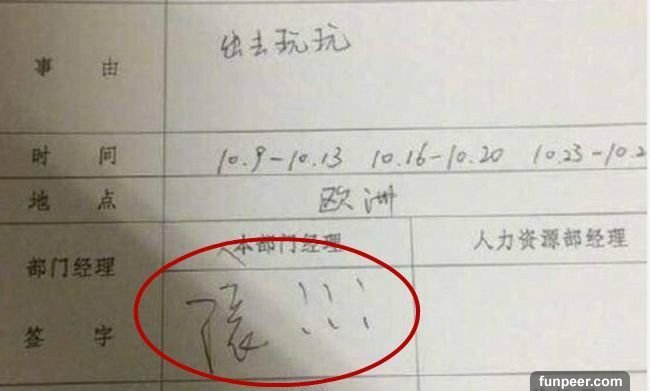 事 由 出去玩玩
时 间 10.9-10.13 10.16-10.20 10.23-10.2
地 点 欧洲
本部门经理 人力资源部经理
部门经理
签 字 滚!!!
funpeer.com